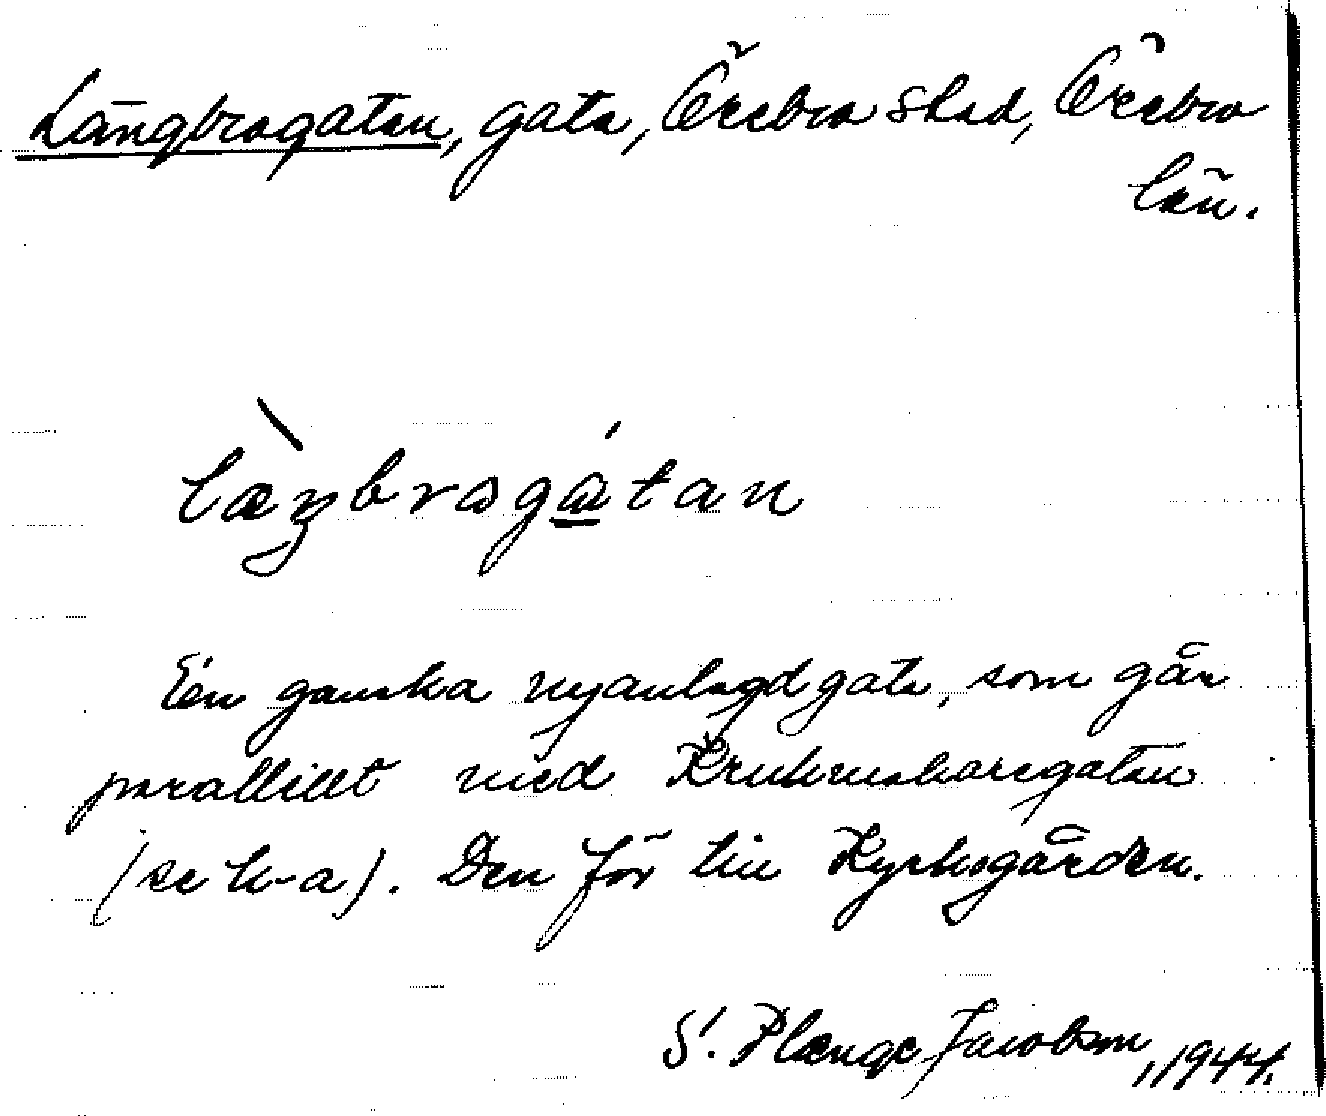 Längbrogatan, gata, Örebro stad, Örebro
län.
læŋbrogatan
En ganska nyanlagd gata, som går
parallellt med Krukmakaregatan
(se k-a). Den för till Kyrkogården.
S. Plenge Jacobson, 1944.